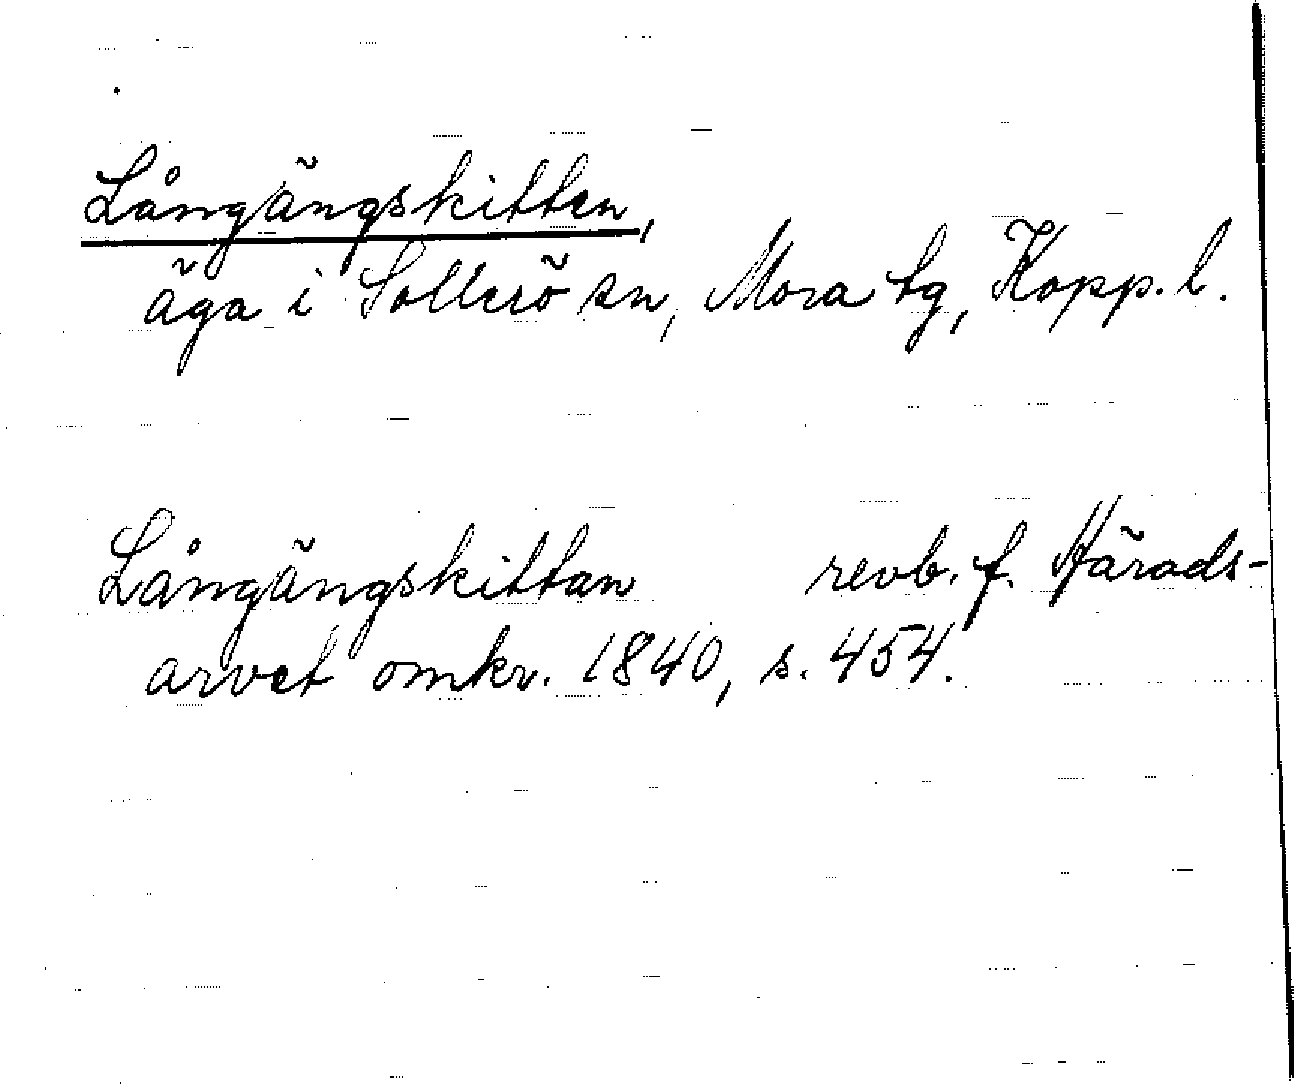 Långängskitten,
äga i Sollerö sn, Mora tg, Kopp. l.
Långängskittan revb. f. Härads-
arvet omkr. 1840, s. 454.